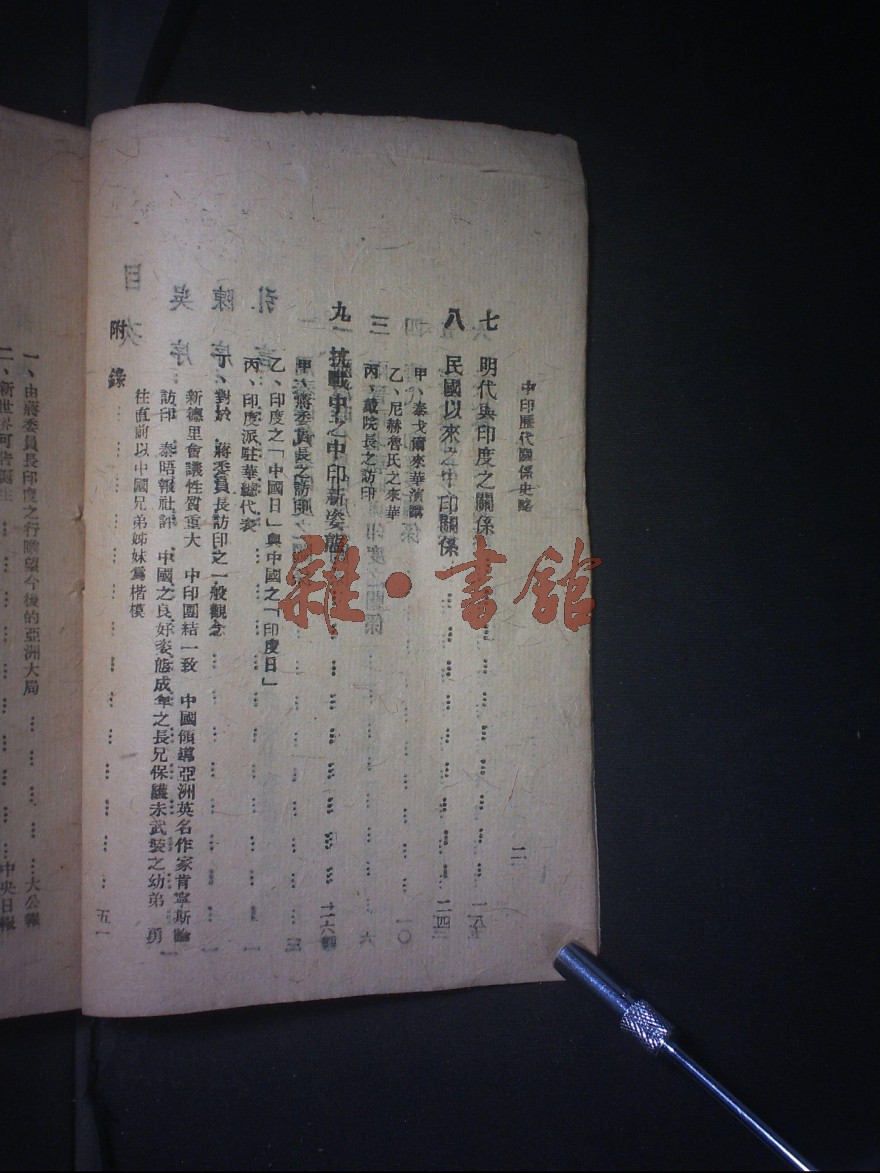 中印歷代關係史略
二
七 明代與印度之關係
八 民國以來之中印關係
甲、泰戈爾來華演講
乙、尼赫魯氏之來華
丙、戴院長之訪印
九 抗戰中之中印新姿態
甲、蔣委員長之訪印
乙、印度之「中國日」與中國之「印度日」
丙、印度派駐華總代表
丁、對於 蔣委員長訪印之一般觀念
新德里會議性質重大 中印團結一致 中國領導亞洲英名作家肯寧斯論
訪印 泰晤報社評 中國之良好姿態成年之長兄保護未武裝之幼弟 勇
往直前以中國兄弟姊妹爲楷模
附錄 五一
一、由蔣委員長印度之行瞻望今後的亞洲大局 大公報
二、新世界可 中央日報
雜·書館